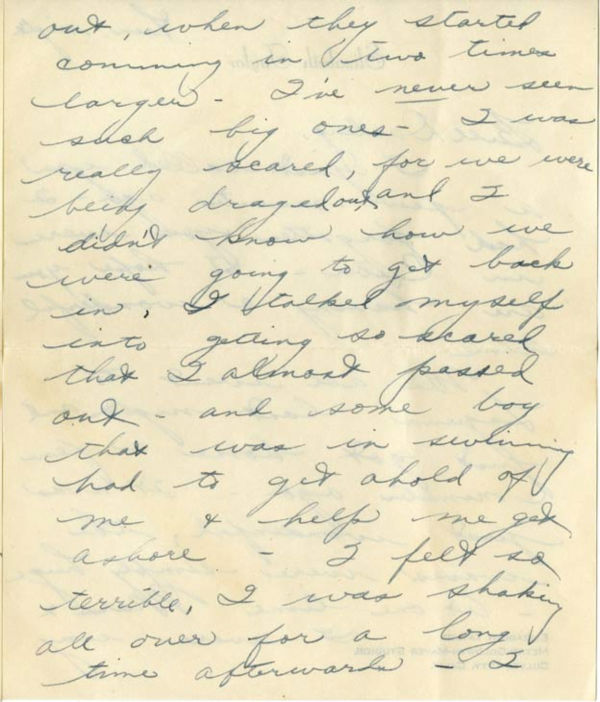 out, when they started
comming in two times
larger - I've never seen
such big ones - I was
really scared, for we were
being draged out and I
didn't know how we
were going to get back
in, I talked myself
into getting so scared
that I almost passed
out - and some boy
that was in swimming
had to get ahold of
me & help me get
ashore - I felt so
terrible, I was shaking
all over for a long
time afterwards - I